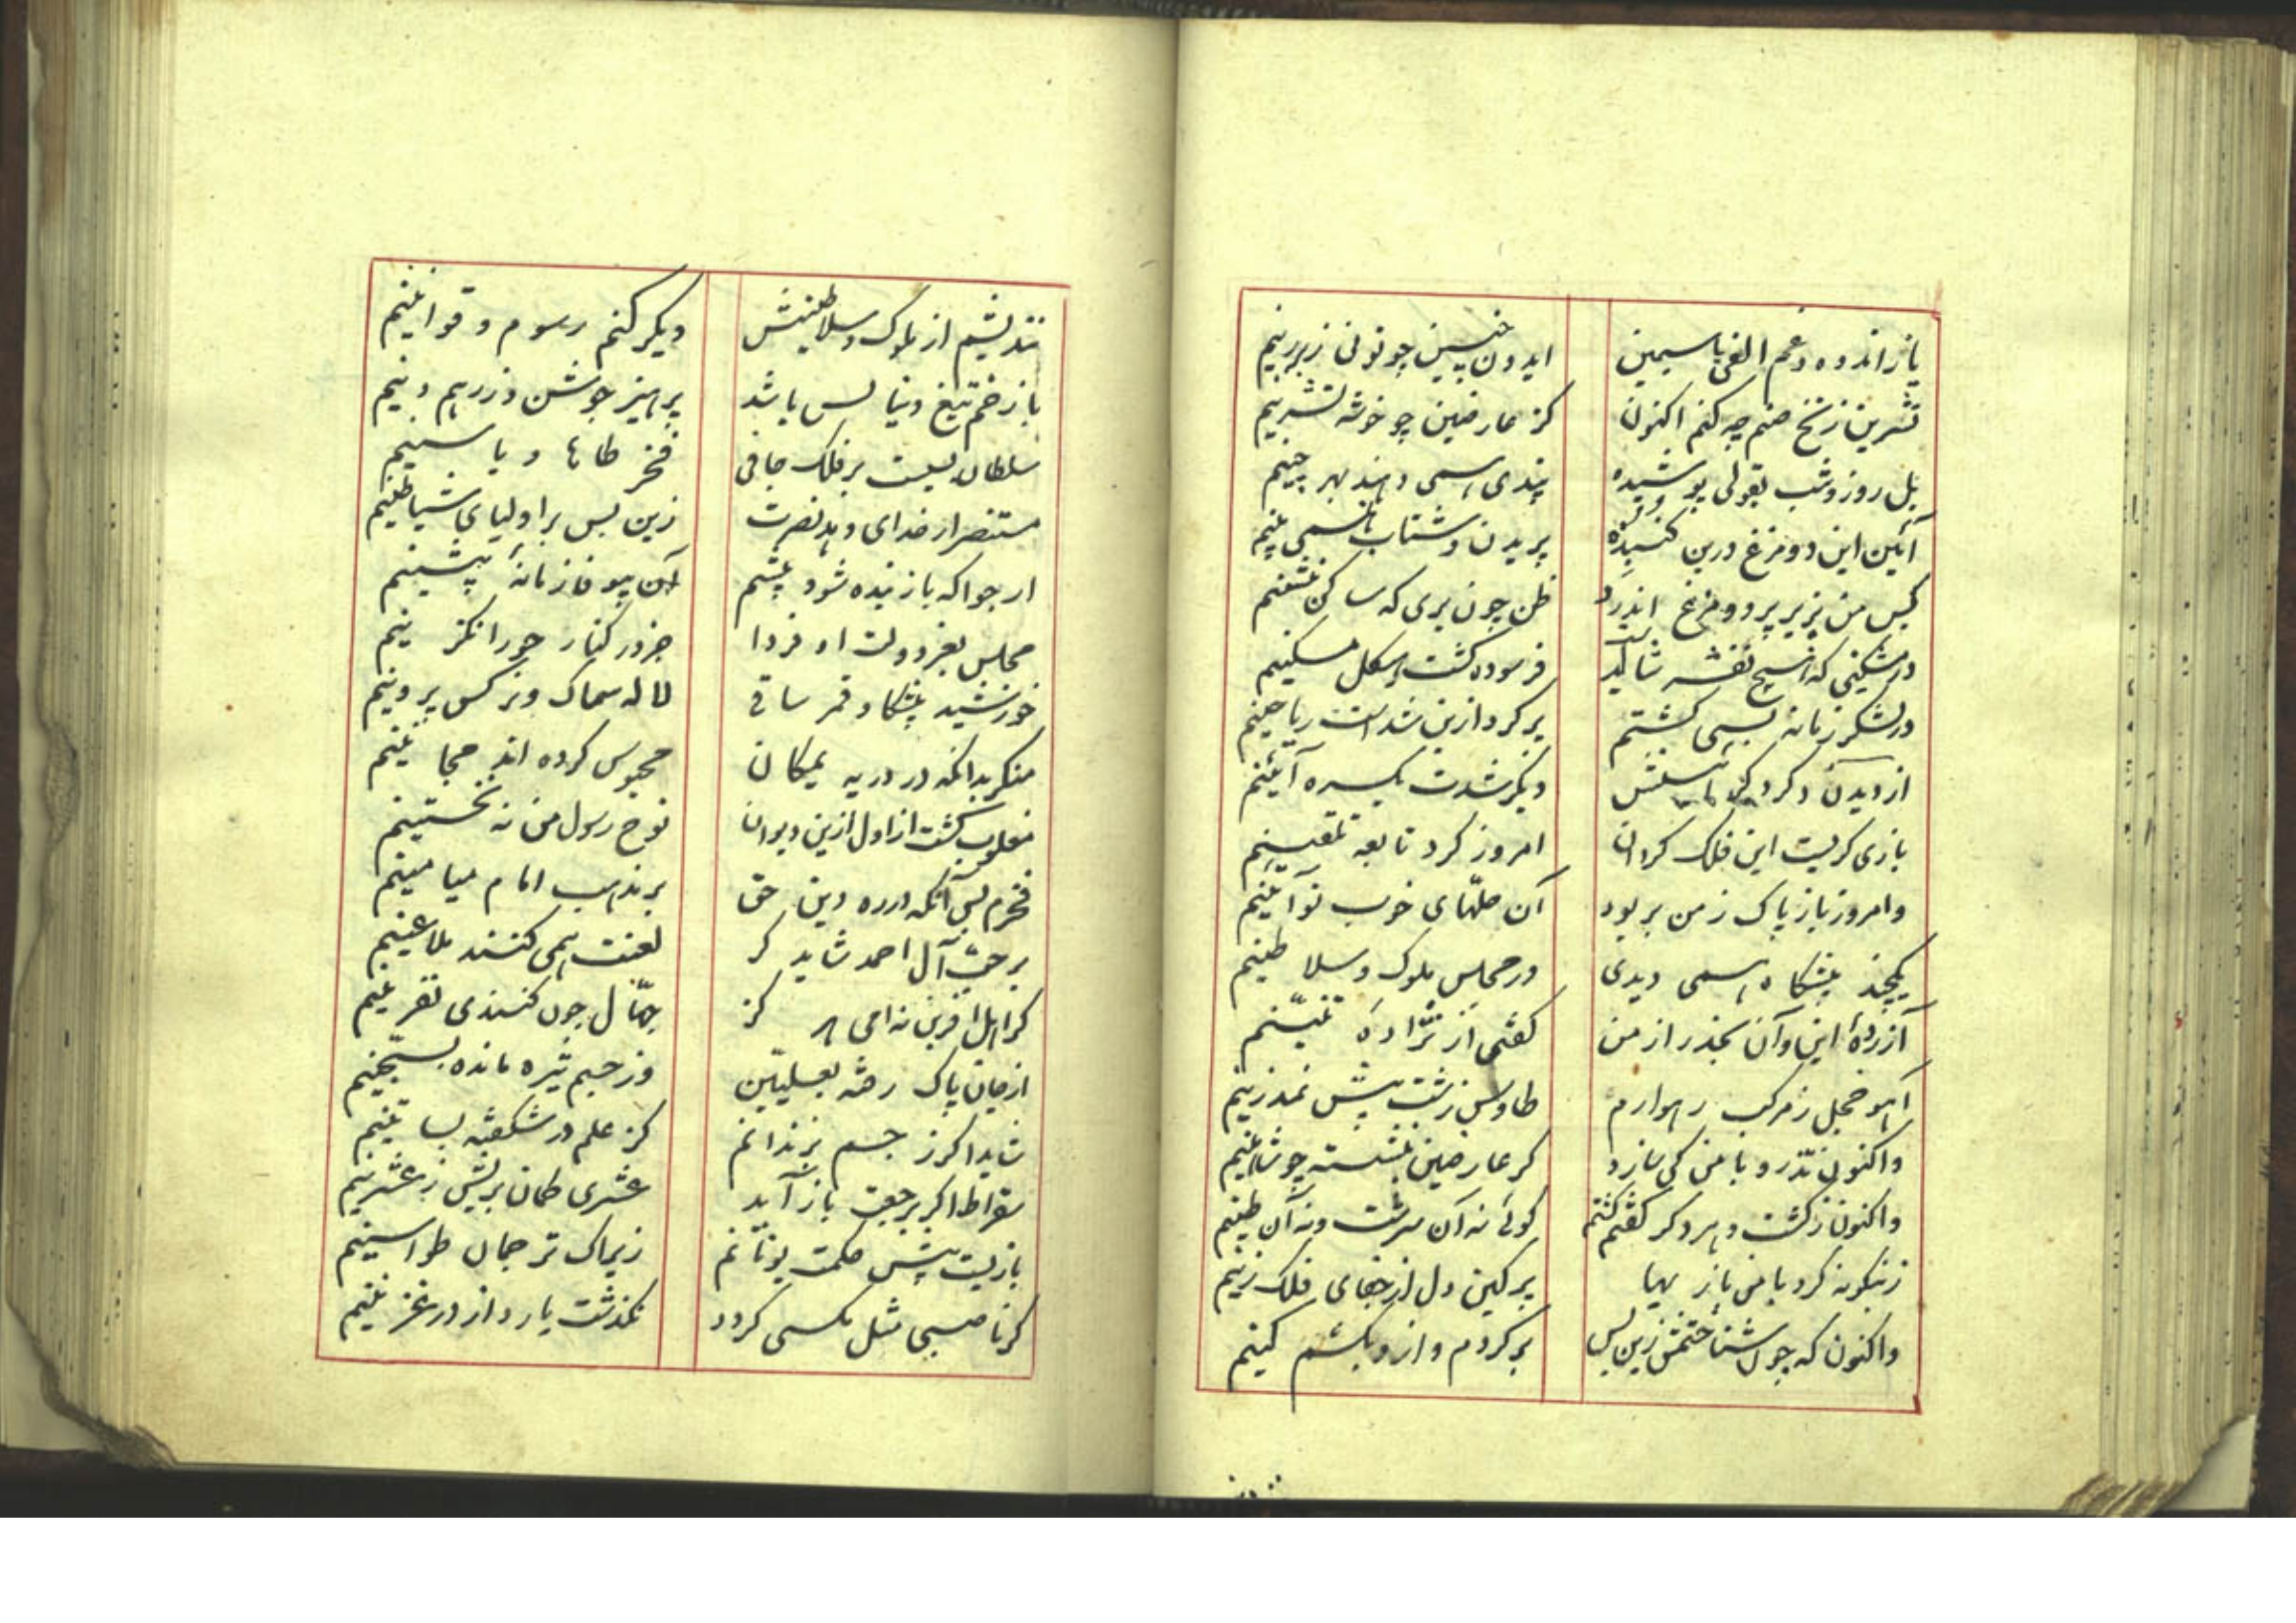 یا زاندوه و غم الفی سیمین
ایدون چنین چو نونی زرینم
نسرین زنخ صنم چه کنم اکنون
کز عارضین چو خوشه نسرینم
بل روز و شب بقولی پوشیده
پندی همی دهند بهر حینم
آئین این دو مرغ درین گنبد
پریدن و شتاب همی بینم
پس من بزیر پر دو مرغ اندر
ظن چون بری که ساکن بنشینم
در مسکنی که هیچ نفرساید
فرسوده گشت هیکل مسکینم
در لشکر زمانه بسی گشتم
پر گرد ازین شدست ریاحینم
از دیدن دگر دگر آئینش
دیگر شدت یکسره آئینم
بازی گریست این فلک گردان
امروز کرد تابعه تلقینم
وامروز باز پاک ز من بربود
آن حلهای خوب نو آئینم
یکچند پیشگاه همی دیدی
در مجلس ملوک و سلاطینم
آزرده این و آن بحذر از من
گفتی از نژاده تنینم
آهو خجل ز مرکب رهوارم
طاوس زشت پیش نمد زینم
واکنون ز گشت دهر دگر گشتم
گوئی نه آن سرشت و نه آن طینم
زینگونه کرد با من باز یها
پر کین دل از جفای فلک زینم
واکنون که چون شناختمش زین پس
برگردم و ازو بکشم کینم
نندیشم از ملوک و سلاطینش
دیگر کنم رسوم و قوانینم
با زخم تیغ دنیا بس باشد
پرهیز جوشن و زرهم دینم
سلطان بسست بر فلک جافی
فخر طاها و یاسینم
مستنصر از خدای دهد نصرت
زین پس بر اولیای شیاطینم
ارجو که باز بنده شود پیشم
آن بیوفا زمانهٔ پیشینم
مجلس بفر دولت او فردا
جز در کنار حورا نگزینم
خورشید پیشکار و قمر ساقی
لاله سماک و نرگس پروینم
منگر بدانکه در دره یمکان
محبوس کرده‌اند مجانینم
مغلوب گشت از اول ازین دیوان
نوح رسول من نه نخستینم
فخرم بس آنکه در ره دین حق
بر مذهب امام میامینم
بر حب آل احمد شاید گر
لعنت همی کنند ملاعینم
گر اهل آفرین نه امی هر کز
جهال چون کنندی نفرینم
از جان پاک رفته بعلیین
وز جسم تیره مانده بسجینم
شاید اگر ز جسم بزندانم
کز علم در شکفته بساتینم
سقراط اگر برجعت باز آید
عشری گمان بریش ز عشرینم
بازیست پیش حکمت یونانم
زیراک ترجمان طواسینم
گر ناصبی مثل مگسی گردد
نگذشت یارد از در غزنینم